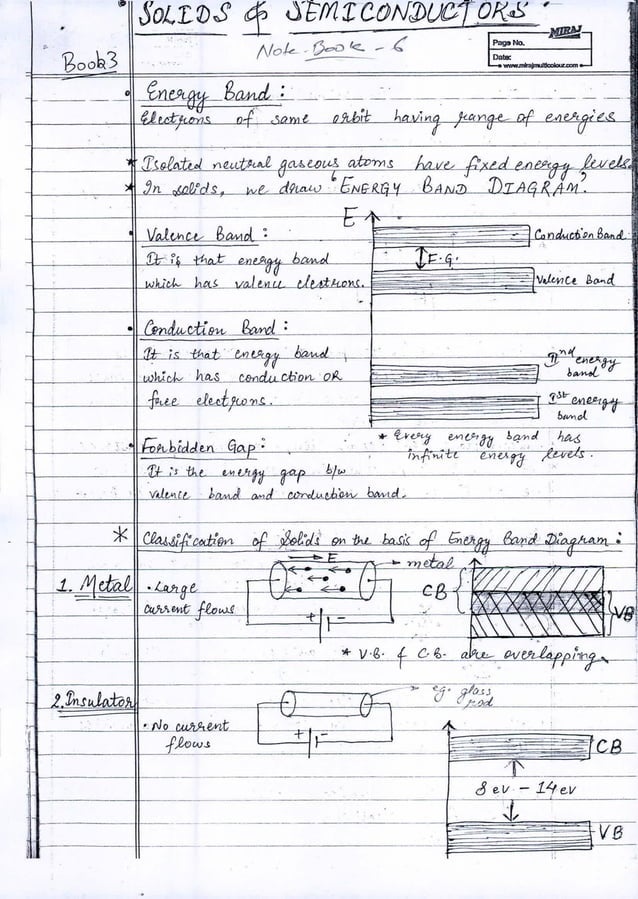 SOLIDS & SEMICONDUCTORS.
Note-Book-6
MIRAJ
Page No.
Date:
• www.mirajmulticolour.com •
Book3
• Energy Band :
Electrons of same orbit having range of energies
* Isolated neutral gaseous atoms have fixed energy levels.
* In solids, we draw "ENERGY BAND DIAGRAM".
E
• Valence Band :
It is that energy band
which has valence electrons.
Conduction Band
F.G.
Valence Band
• Conduction Band :
It is that energy band
which has conduction OR
free electrons.
IInd energy
band
Ist energy
band
* Every energy band has
infinite energy levels.
• Forbidden Gap:
It is the energy gap b/w
valence band and conduction band.
* Classification of Solids on the basis of Energy Band Diagram :
1. Metal
• Large
current flows
E
metal
+ -
CB
VB
* V.B. & C.B. are overlapping.
2. Insulator
• No current
flows
eg. glass
rod
+ -
CB
8 ev - 14 ev
VB